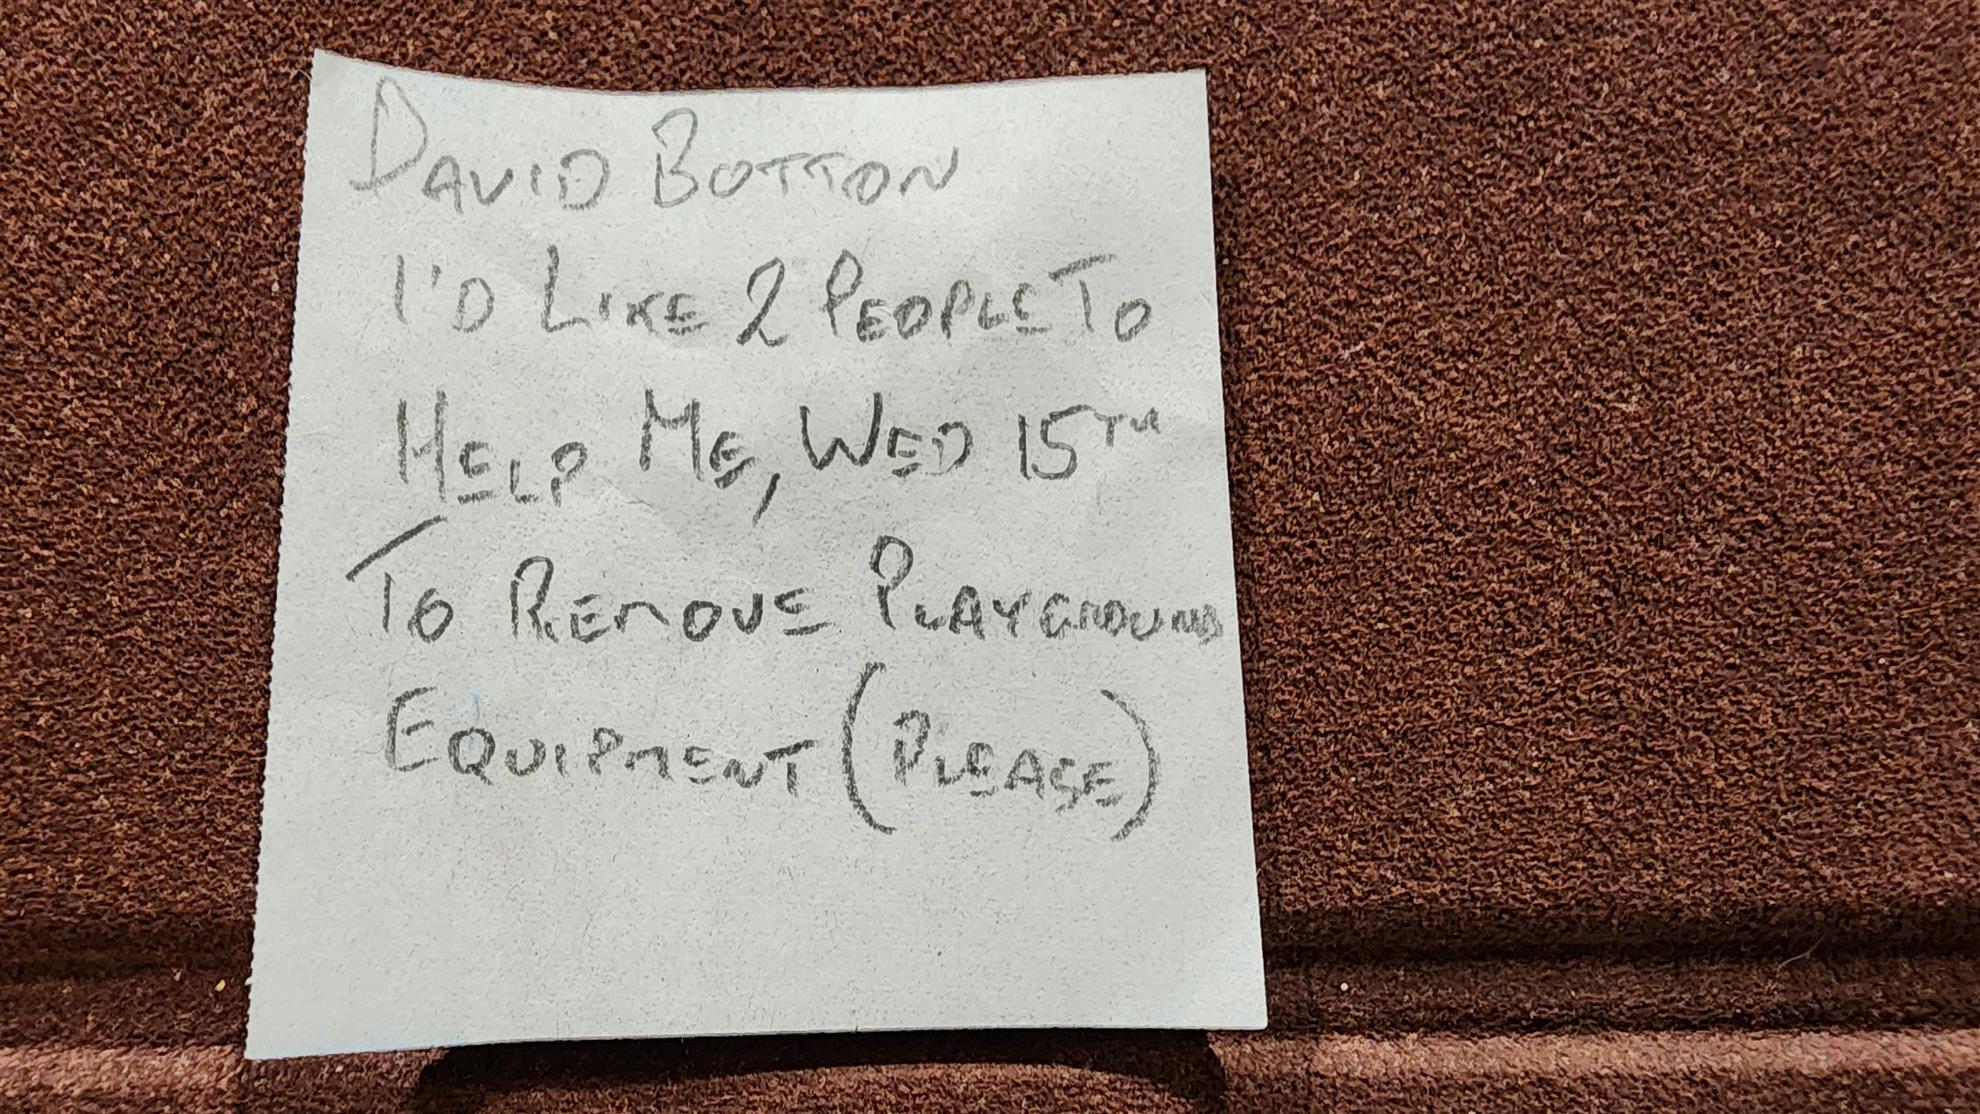 DAVID BOTTON
I'D LIKE 2 PEOPLE TO
HELP ME, WED 15TH
TO REMOVE PLAYGROUND
EQUIPMENT (PLEASE)